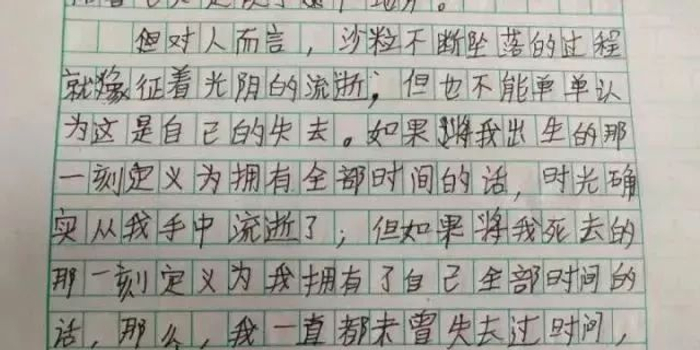 但对人而言，沙粒不断坠落的过程
就像征着光阴的流逝；但也不能单单认
为这是自己的失去。如果将我出生的那
一刻定义为拥有全部时间的话，时光确
实从我手中流逝了；但如果将我死去的
那一刻定义为我拥有了自己全部时间的
话，那么，我一直都未曾失去过时间，